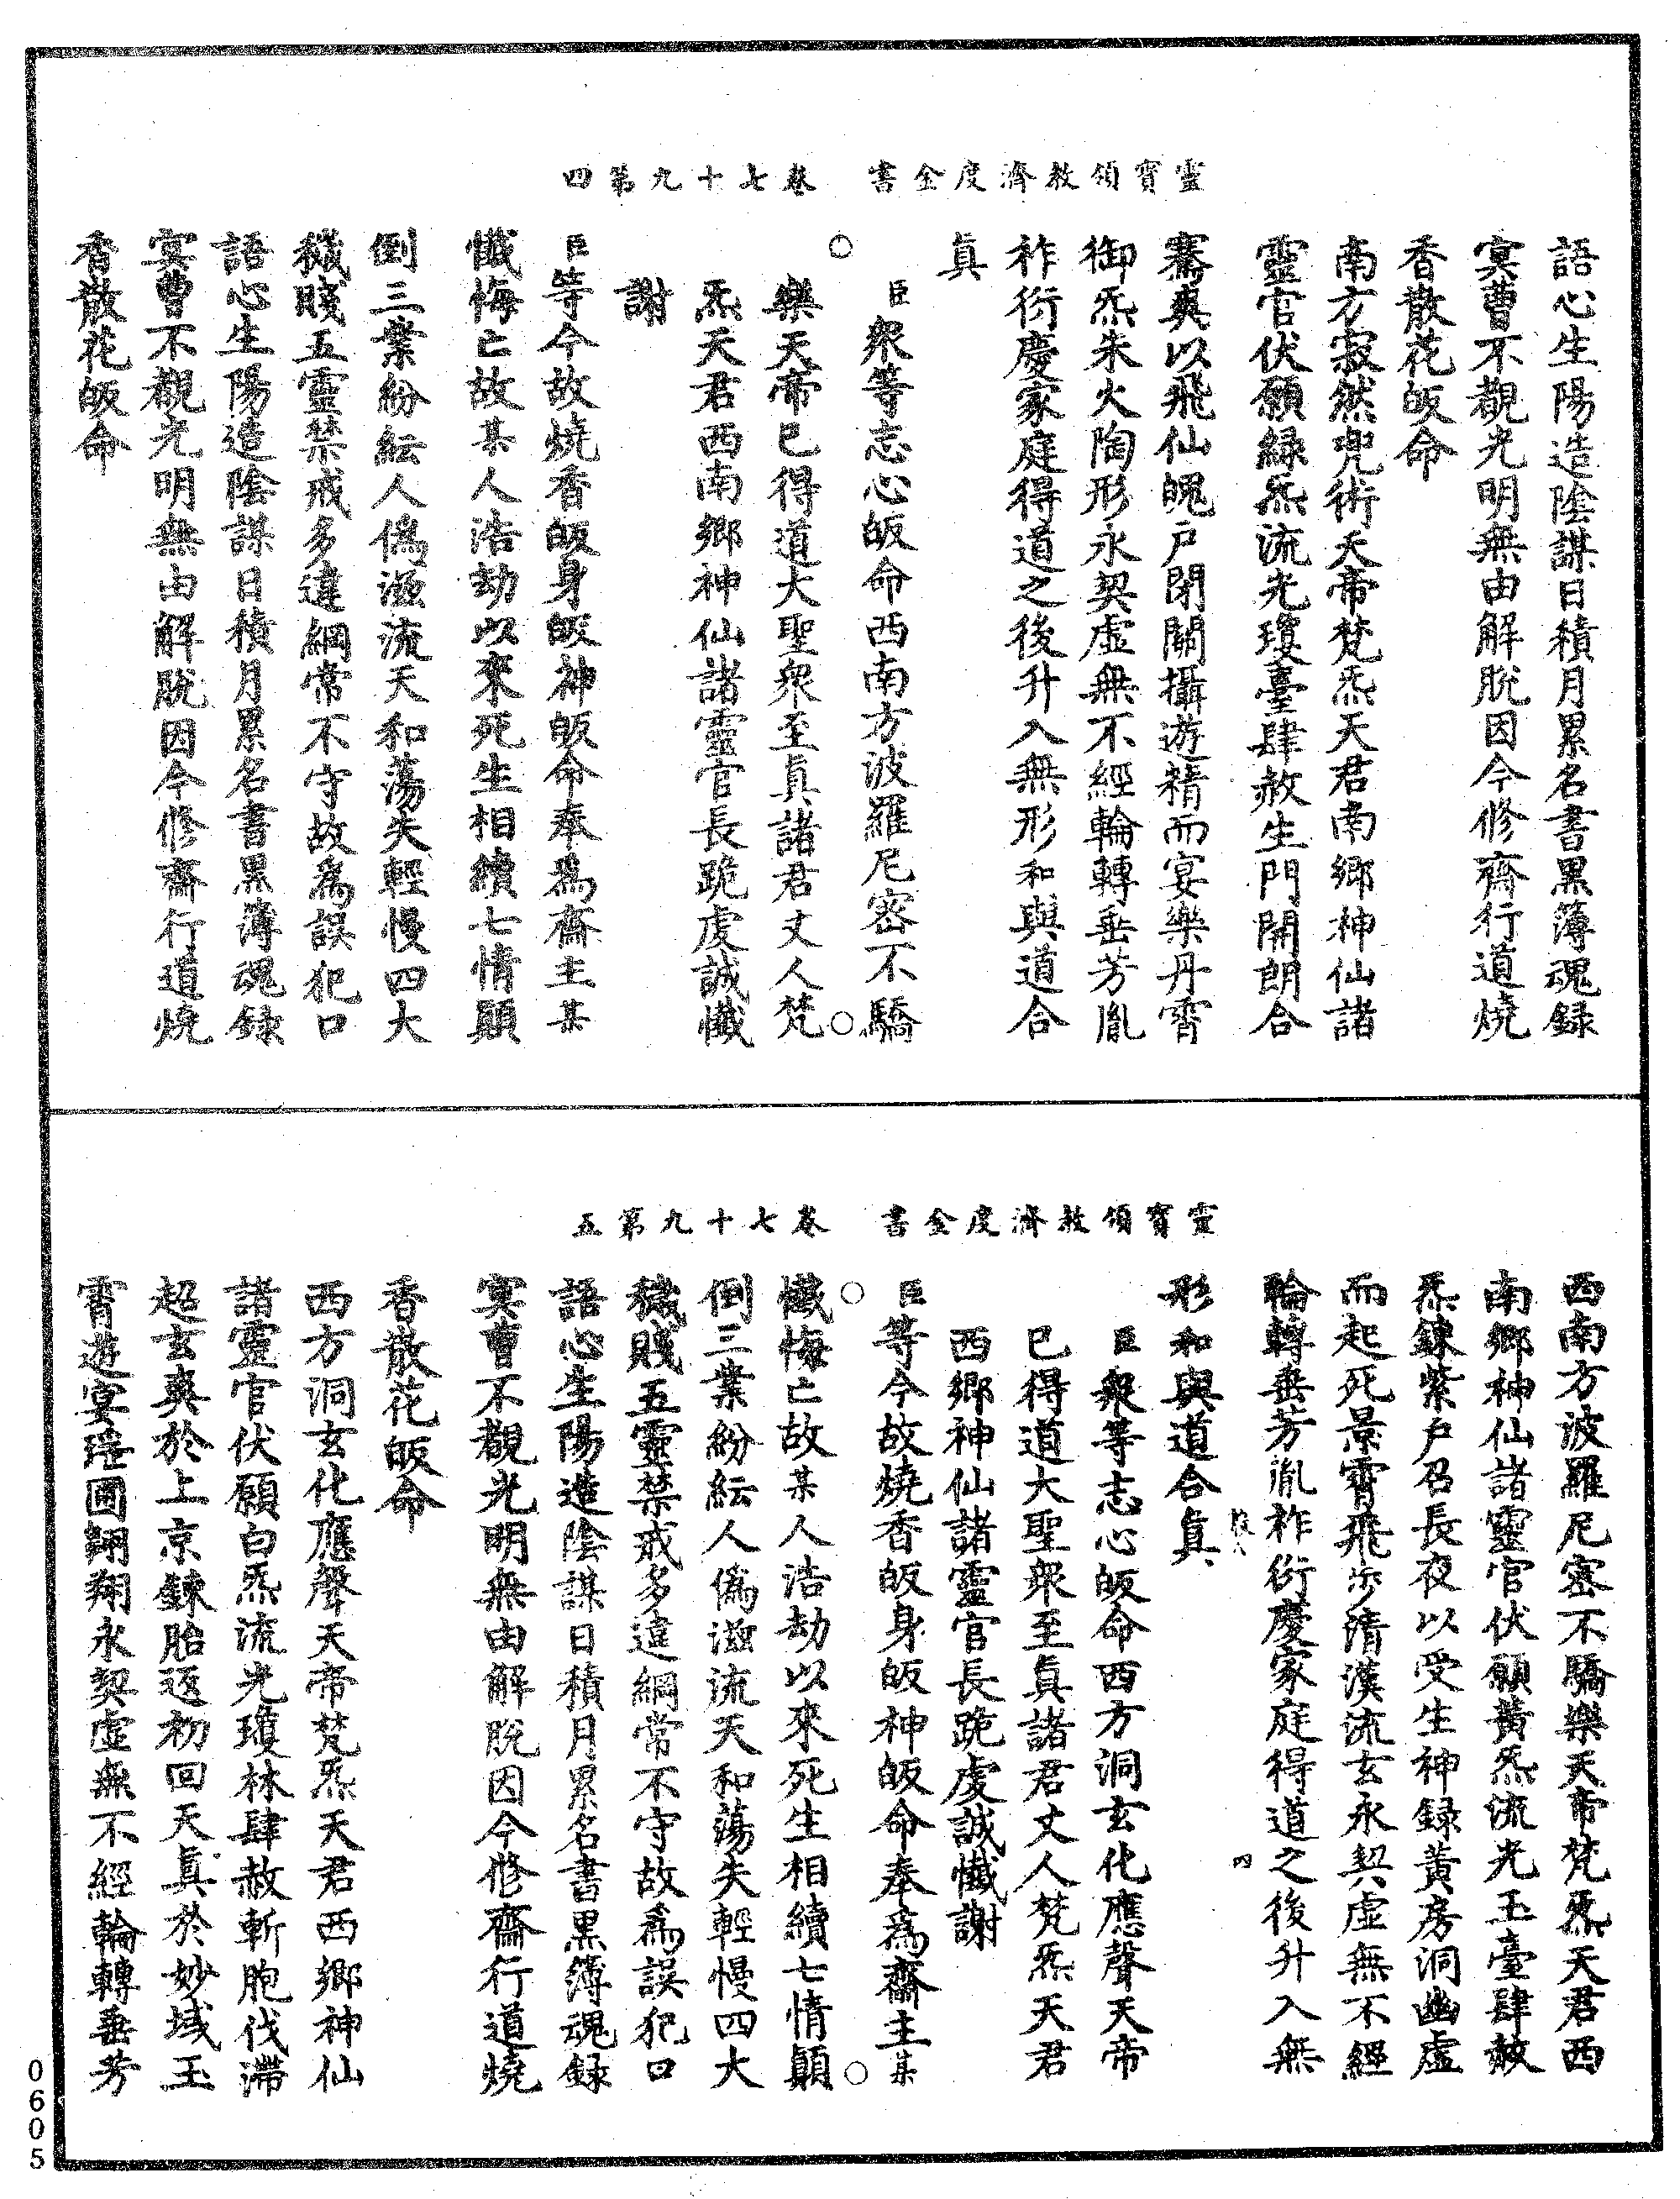 靈寶領教濟度金書　卷七十九第四
語心生陽造陰謀日積月累名書黑簿魂録
冥曹不覩光明無由解脫因今修齋行道燒
香散花皈命
南方寂然兜術天帝梵炁天君南鄉神仙諸
靈官伏願緑炁流光瓊臺肆赦生門開朗合
騫爽以飛仙魄戶閉關攝遊精而宴樂丹霄
御炁朱火陶形永契虛無不經輪轉垂芳胤
祚衍慶家庭得道之後升入無形和與道合
真
○臣衆等志心皈命西南方波羅尼密不驕
樂天帝已得道大聖衆至眞諸君丈人梵○
炁天君西南鄉神仙諸靈官長跪虔誠懺
謝
臣等今故燒香皈身皈神皈命奉爲齋主某
懺悔亡故某人浩劫以來死生相續七情顛
倒三業紛紜人僞滋流天和蕩失輕慢四大
穢賤五靈禁戒多違綱常不守故爲誤犯口
語心生陽造陰謀日積月累名書黑簿魂録
冥曹不覩光明無由解脫因今修齋行道燒
香散花皈命
靈寶領教濟度金書　卷七十九第五
西南方波羅尼密不驕樂天帝梵炁天君西
南鄉神仙諸靈官伏願黃炁流光玉臺肆赦
炁鍊紫戶召長夜以受生神録黃房洞幽虛
而起死景霄飛步清漢流玄永契虛無不經
輪轉垂芳胤祚衍慶家庭得道之後升入無
四
形和與道合真
臣衆等志心皈命西方洞玄化應聲天帝
已得道大聖衆至眞諸君丈人梵炁天君
西鄉神仙諸靈官長跪虔誠懺謝
臣等今故燒香皈身皈神皈命奉爲齋主某
○懺悔亡故某人浩劫以來死生相續七情顛○
倒三業紛紜人僞滋流天和蕩失輕慢四大
穢賤五靈禁戒多違綱常不守故爲誤犯口
語心生陽造陰謀日積月累名書黑簿魂録
冥曹不覩光明無由解脫因今修齋行道燒
香散花皈命
西方洞玄化應聲天帝梵炁天君西鄉神仙
諸靈官伏願白炁流光瓊林肆赦斬胞伐滯
超玄爽於上京鍊胎返初回天眞於妙域玉
霄遊宴瑤圃翱翔永契虛無不經輪轉垂芳
0605